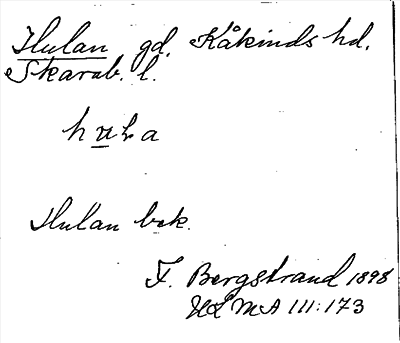 Hulan gd. Kåkinds hd.
Skarab. l.
huLa
Hulan bek.
F. Bergstrand 1898
ULMA 111:173